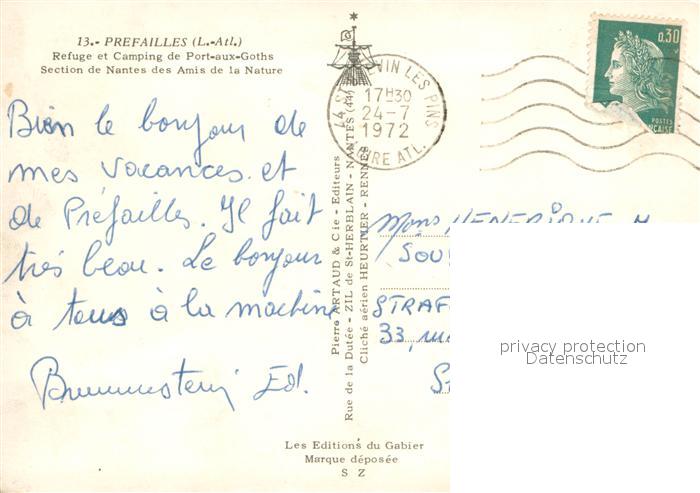 13.- PREFAILLES (L.-Atl.)
Refuge et Camping de Port-aux-Goths
Section de Nantes des Amis de la Nature
Bien le bonjour de
mes vacances et
de Préfailles. Il fait
très beau. Le bonjour
à tous à la machine
Ed.
Pierre ARTAUD & Cie - Editeurs
Rue de la Dutée - ZIL de St-HERBLAIN - NANTES (44)
Cliché aérien HEURTIER - RENNES
Les Editions du Gabier
Marque déposée
S Z
44 ST BREVIN LES PINS
17H30
24-7
1972
LOIRE ATL.
0,30
POSTES
Mons
SOU
STRAF
33, rue
privacy protection
Datenschutz